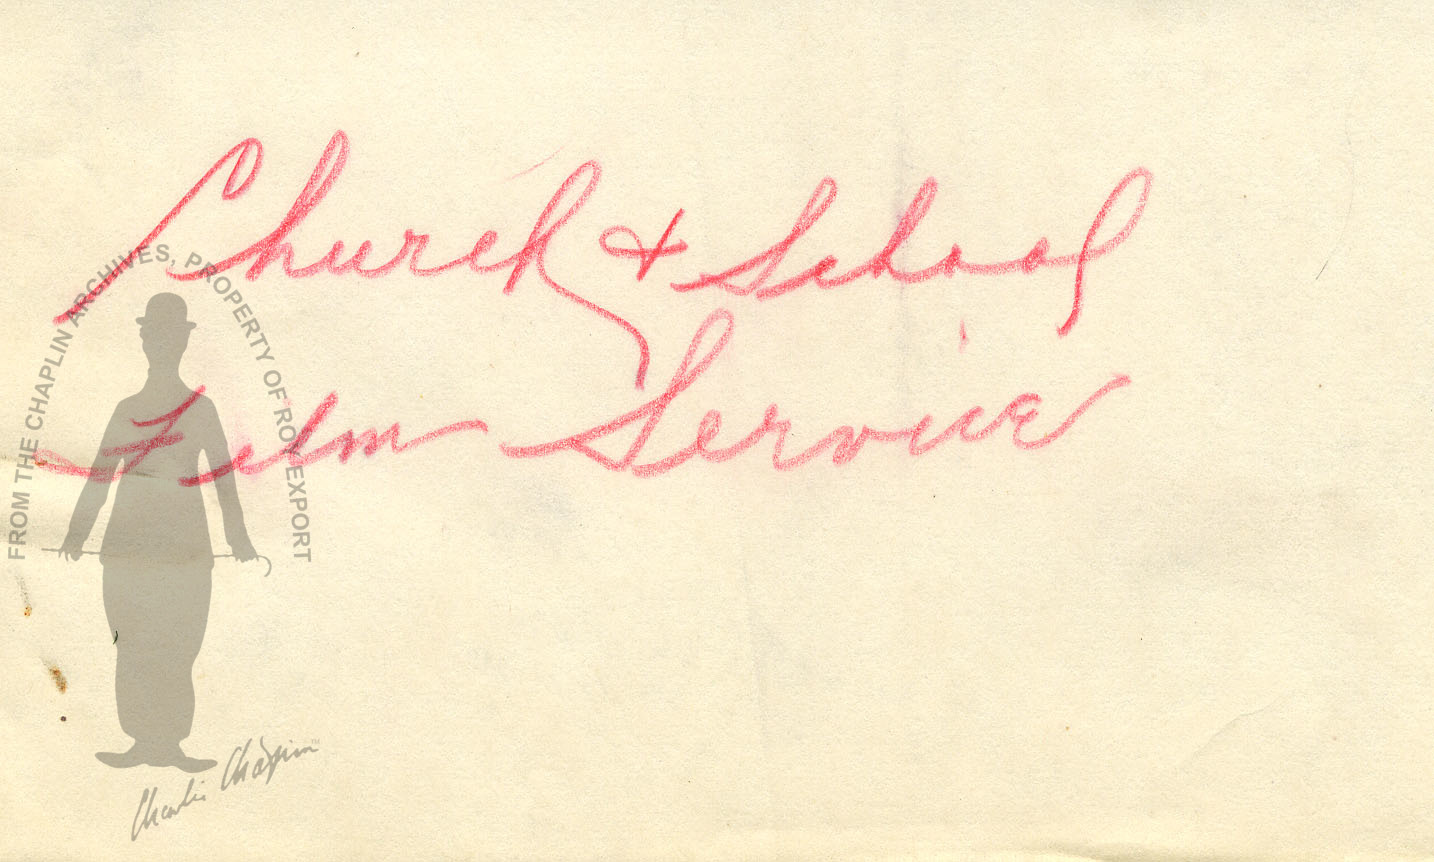 Church & School
Film Service
FROM THE CHAPLIN ARCHIVES, PROPERTY OF ROY EXPORT
Charlie Chaplin